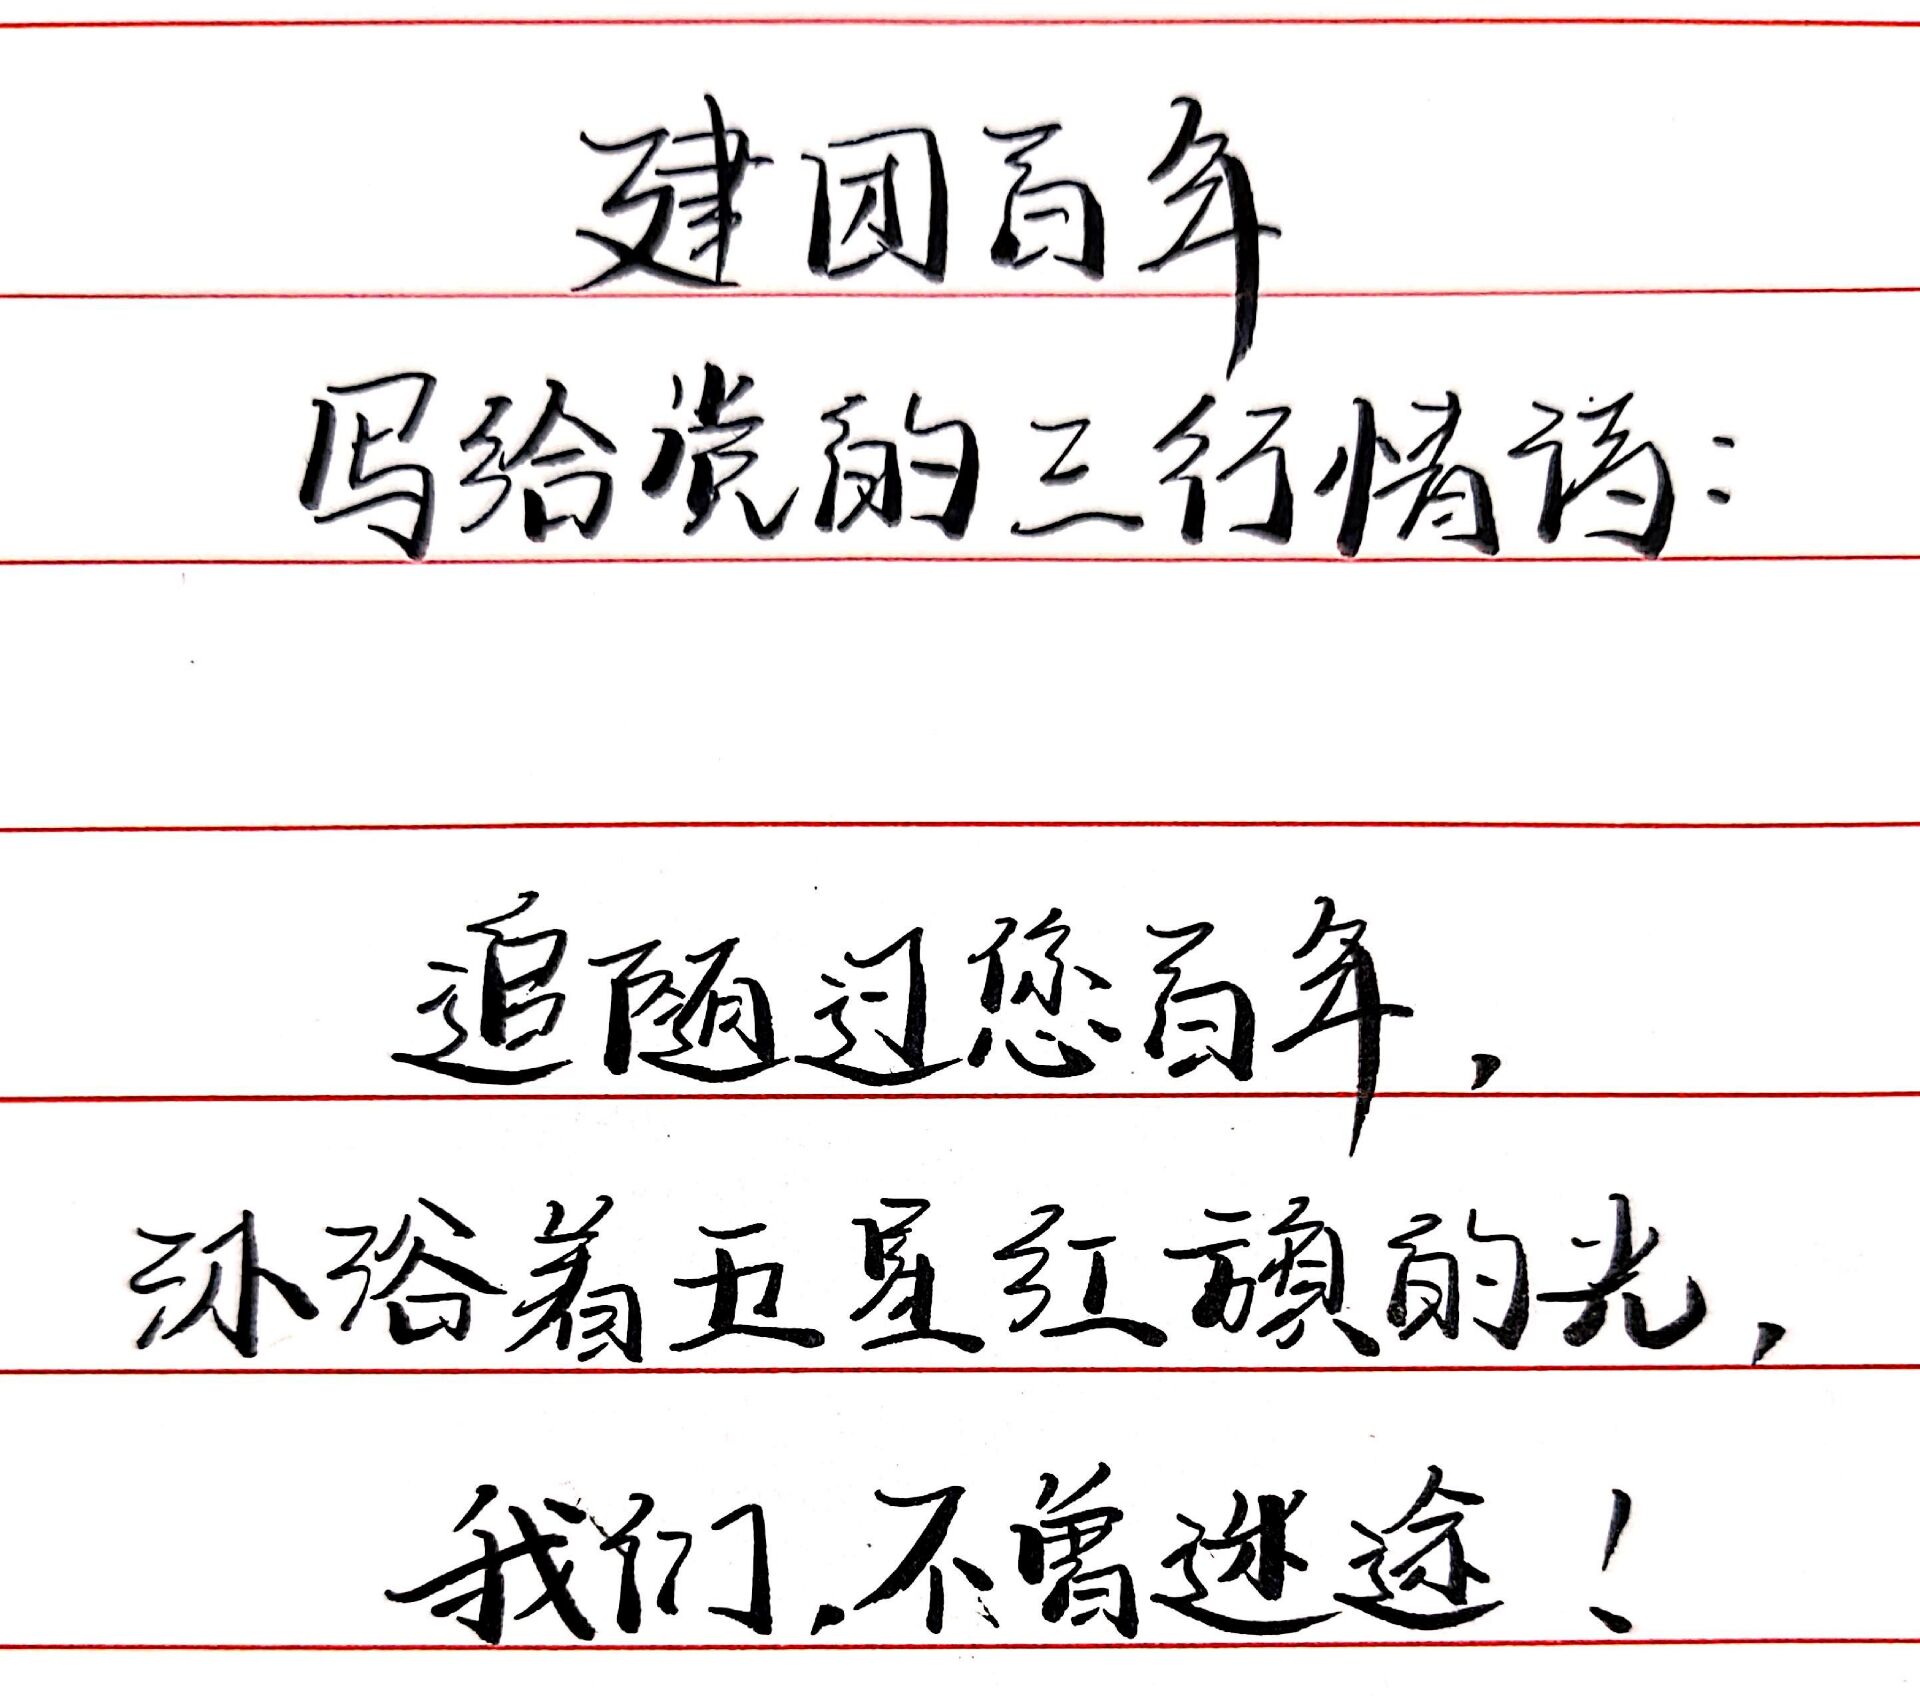 建团百年
写给党的三行情诗：
追随过您百年，
沐浴着五星红旗的光，
我们，不曾迷途！